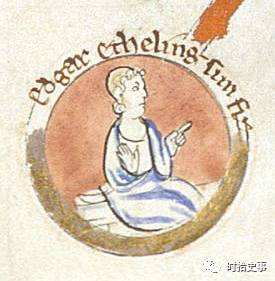 Edgar etheling sun fiz
时拾史事